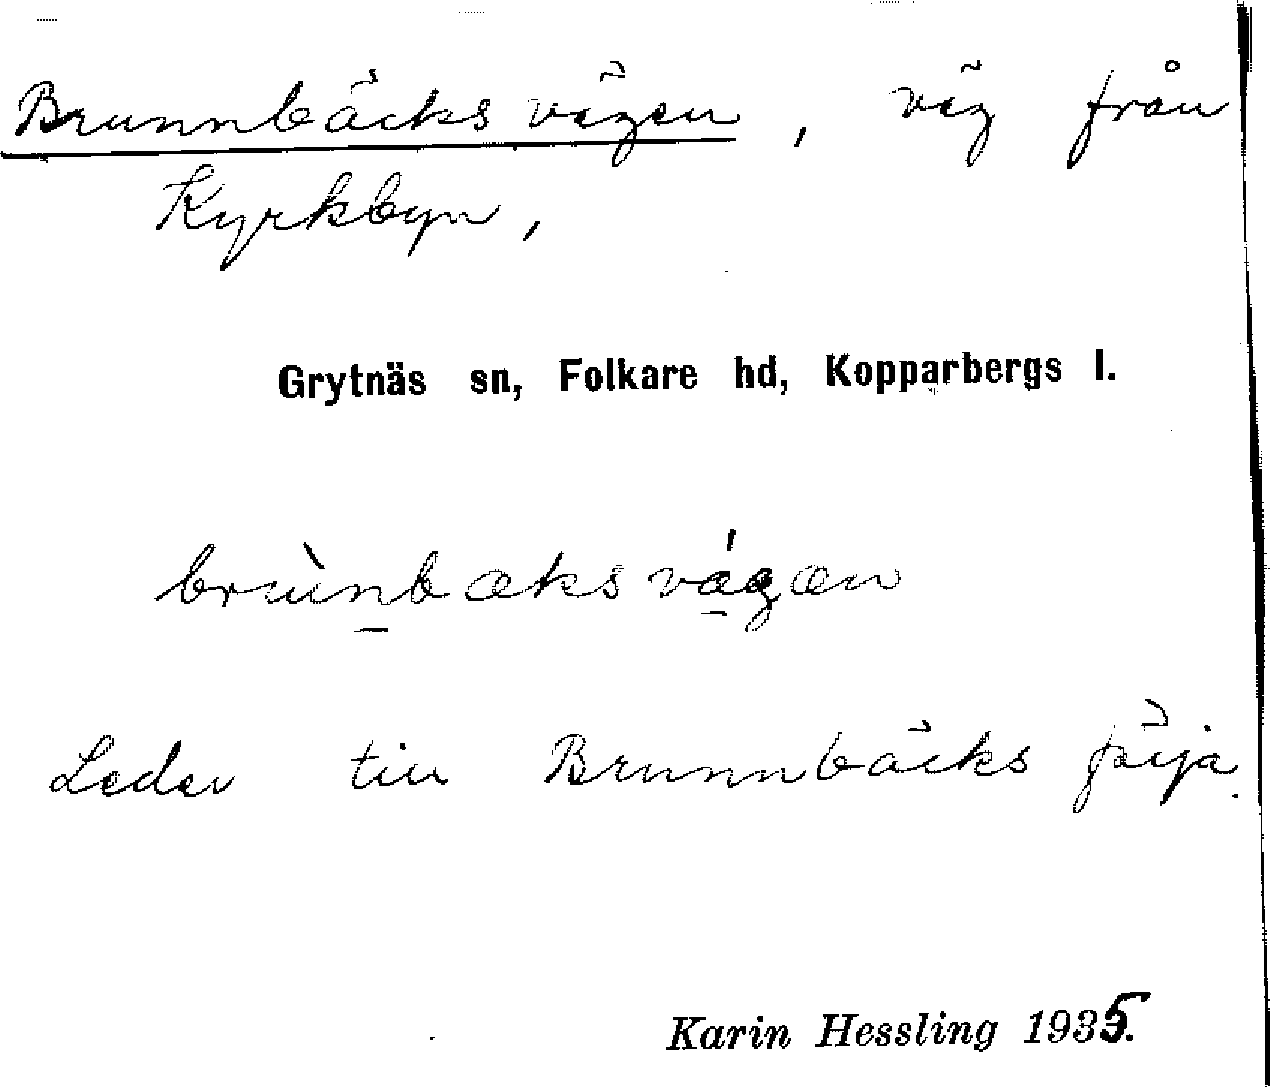 Brunnbäcksvägen, väg från
Kyrkbyn,
Grytnäs sn, Folkare hd, Kopparbergs l.
brùnbæksvǽgæn
Leder till Brunnbäcks färja.
Karin Hessling 1935.